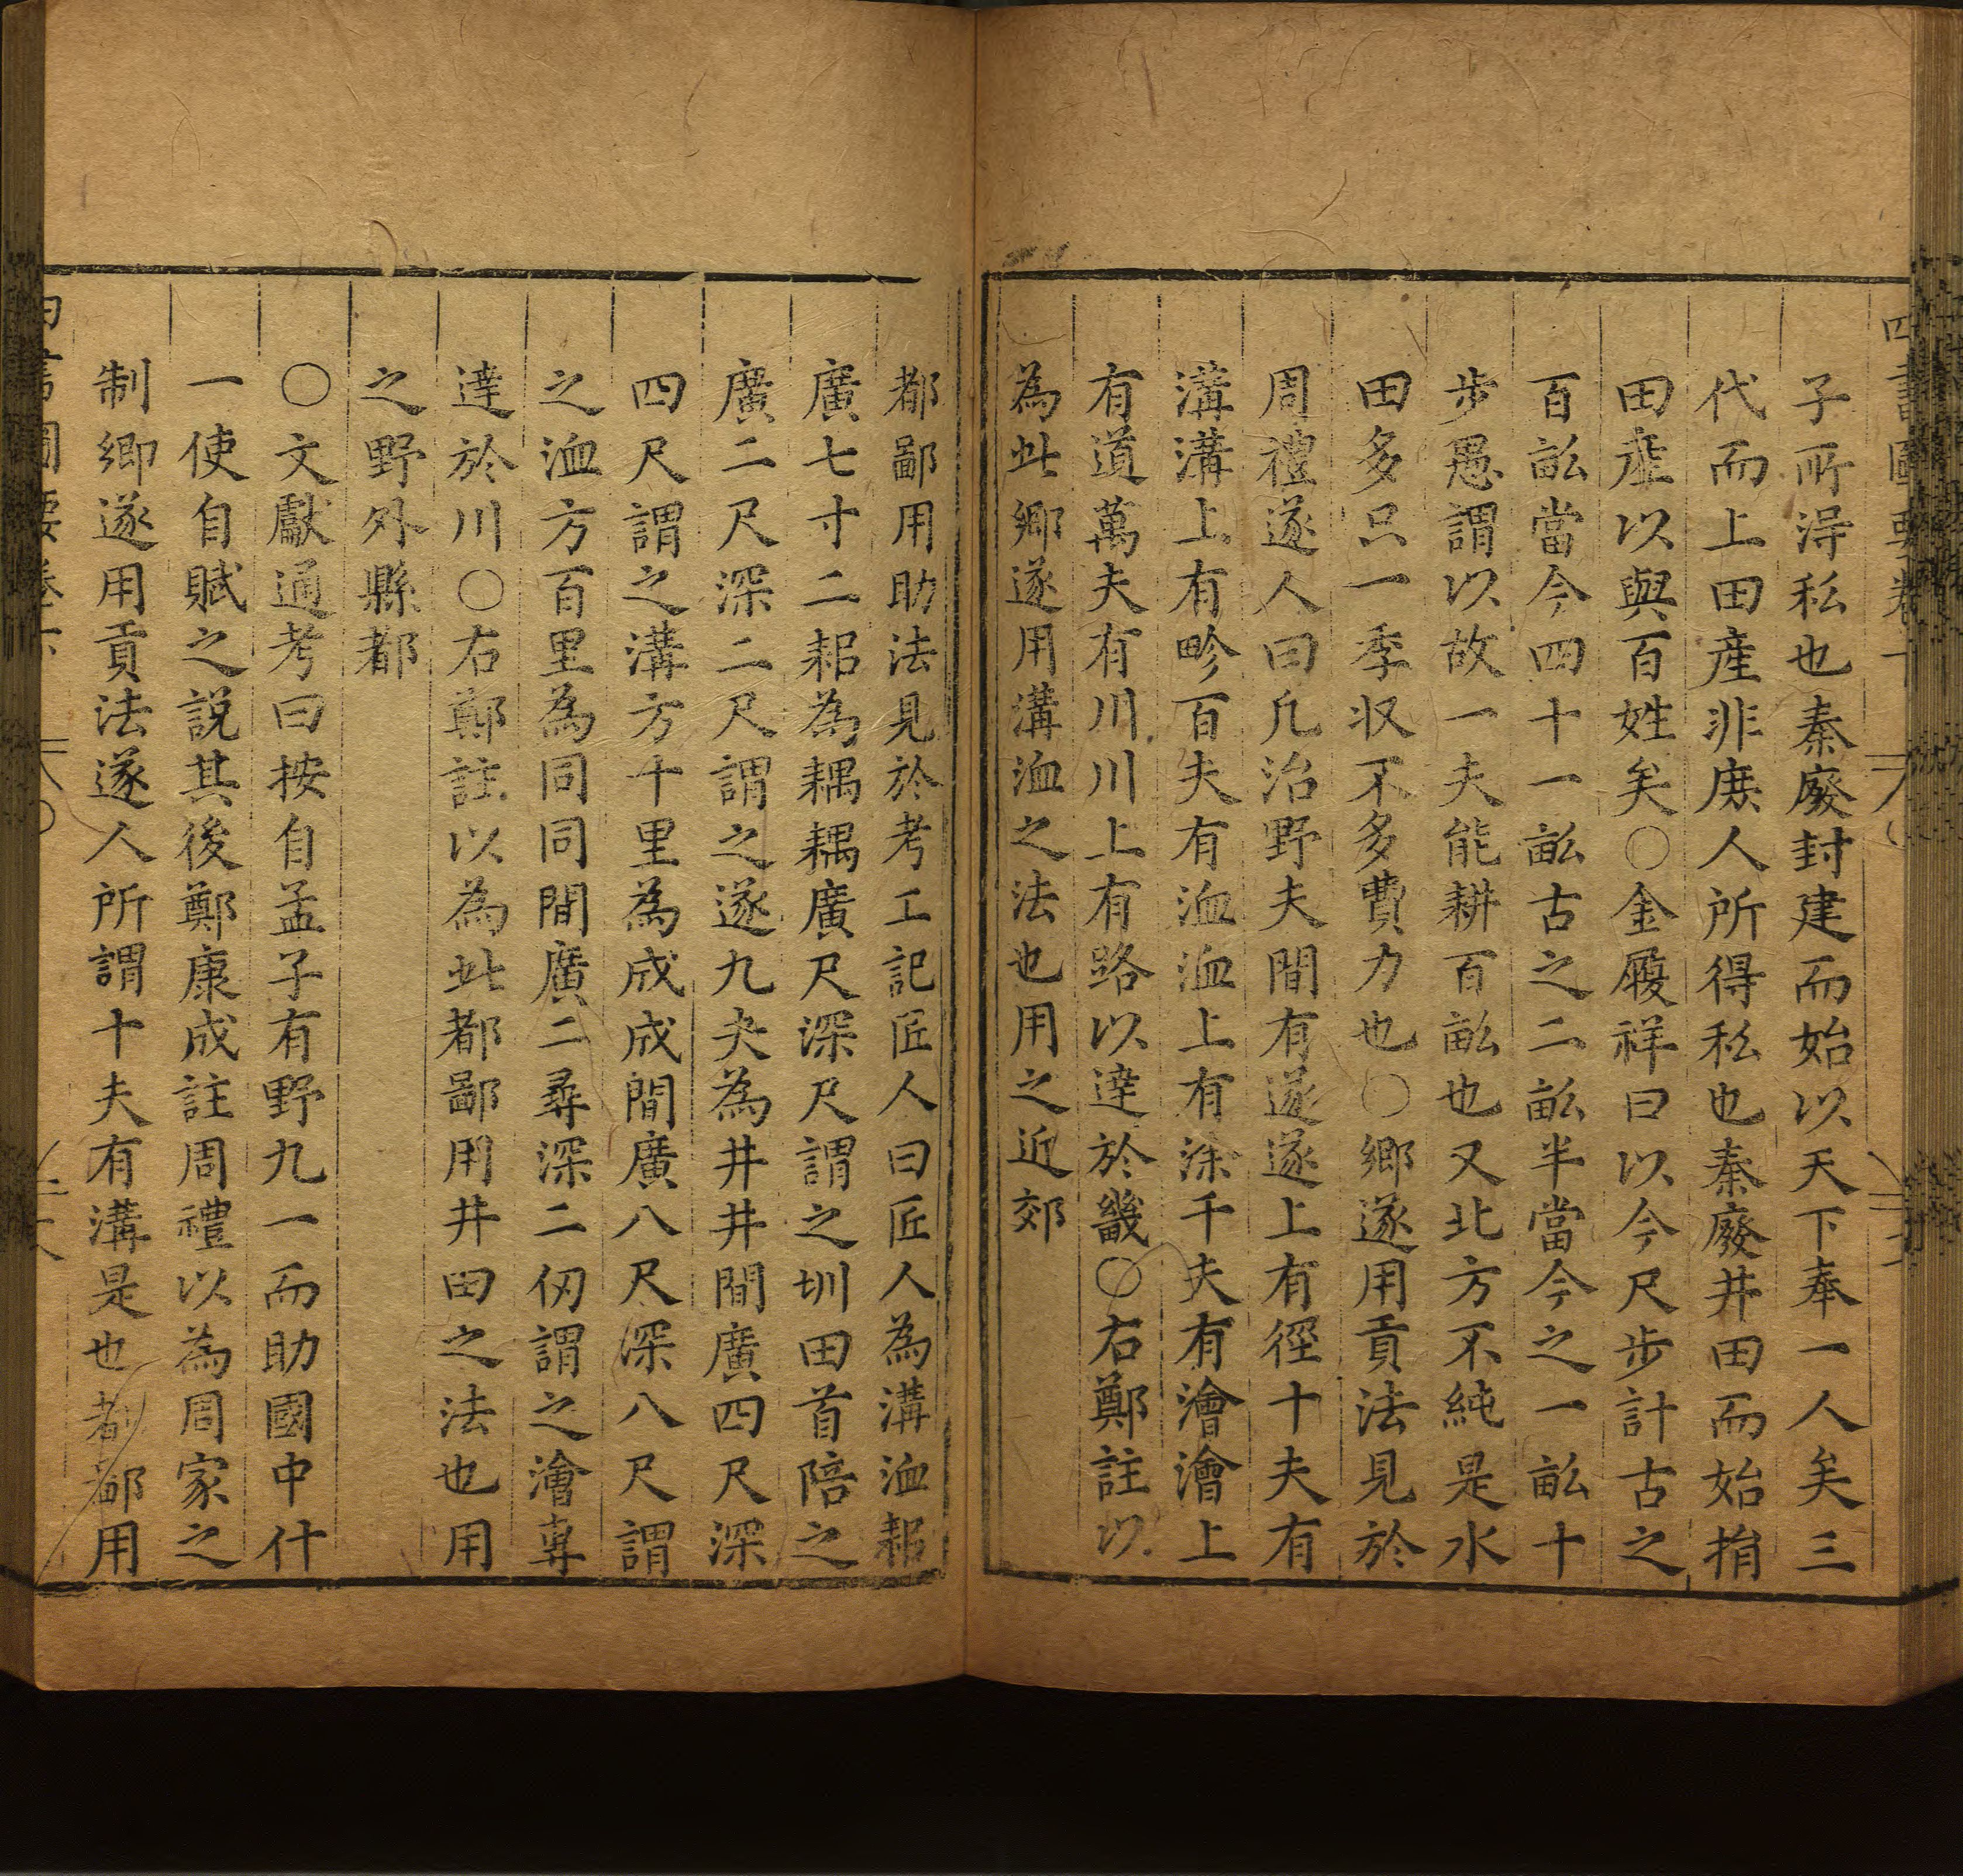 子所淂私也秦廢封建而始以天下奉一人矣三
代而上田産非庶人所得私也秦廢井田而始捐
田産以與百姓矣○金履祥曰以今尺步計古之
百畝當今四十一畝古之二畝半當今之一畝十
步愚謂以故一夫能耕百畝也又北方不純是水
田多只一季収不多費力也○鄉遂用貢法見於
周禮遂人曰凡治野夫間有遂遂上有徑十夫有
溝溝上有畛百夫有洫洫上有涂千夫有澮澮上
有道萬夫有川川上有路以達於畿○右鄭註以
為此鄉遂用溝洫之法也用之近郊
都鄙用助法見於考工記匠人曰匠人為溝洫耜
廣七寸二耜為耦耦廣尺深尺謂之圳田首陪之
廣二尺深二尺謂之遂九夫為井井間廣四尺深
四尺謂之溝方十里為成成間廣八尺深八尺謂
之洫方百里為同同間廣二尋深二仞謂之澮專
達於川○右鄭註以為此都鄙用井田之法也用
之野外縣都
○文獻通考曰按自孟子有野九一而助國中什
一使自賦之說其後鄭康成註周禮以為周家之
制鄉遂用貢法遂人所謂十夫有溝是也都鄙用